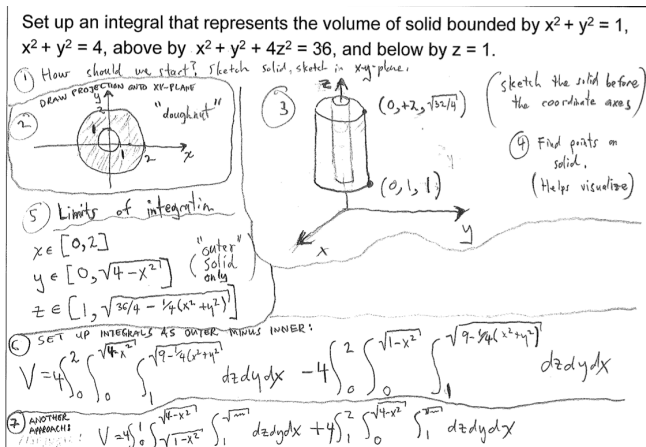 Set up an integral that represents the volume of solid bounded by x² + y² = 1,
x² + y² = 4, above by x² + y² + 4z² = 36, and below by z = 1.
① How should we start? Sketch solid, sketch in x-y-plane.
② DRAW PROJECTION ONTO XY-PLANE
y
2
1
"doughnut"
1 2 x
③
z
(0,+2,√32/4)
(0,1,1)
y
x
(sketch the solid before
the coordinate axes)
④ Find points on
solid.
(Helps visualize)
⑤ Limits of integration
x ∈ [0,2]
y ∈ [0,√4-x²]
z ∈ [1,√36/4 - ¼(x²+y²)]
("outer"
solid
only)
⑥ SET UP INTEGRALS AS OUTER MINUS INNER:
V = 4∫₀² ∫₀^√4-x² ∫₁^√9-¼(x²+y²) dzdydx - 4∫₀² ∫₀^√1-x² ∫₁^√9-¼(x²+y²) dzdydx
⑦ ANOTHER
APPROACH:
V = 4∫₀¹ ∫_√1-x²^√4-x² ∫₁^√ dzdydx + 4∫₁² ∫₀^√4-x² ∫₁^√ dzdydx